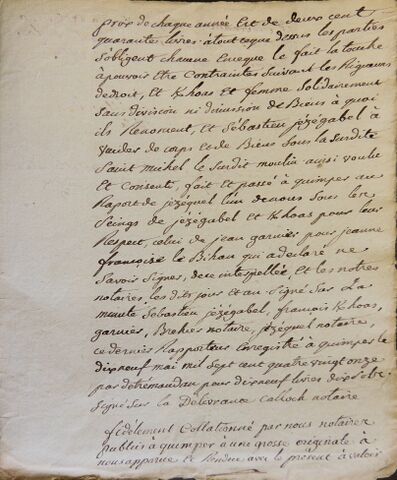 prix de chaque année Est de deux cent
quarante livres. à tout ce que dessus les parties
s'obligent chacune En ce que le fait la touche
à pouvoir Etre Contraintes suivant les Rigueurs
de droit, Et Khoas Et femme Solidairement
Sans division ni dimission de Biens à quoi
ils Renoncent, Et Sébastien jézégabel à
vuides de corps et de Biens Sous la Surdite
Saint michel le Surdit moulin aussi voulu
Et Consenti, fait Et passé à quimper au
Raport de jézéquel l'un de nous Sous les
Seings de jézégabel Et Khoas pour leur
Respect, celui de jean garnier pour jeanne
françoise le Bihan qui a déclaré ne
Savoir Signer, de ce interpellée, Et les notres
notaires les dits jour et an Signé Sur La
minute Sébastien jézégabel, françois Khoas,
garnier, Brehier notaire, jézéquel notaire,
ce dernier Rapporteur Enregistré à quimper le
dix neuf mai mil Sept cent quatre vingt onze
par detrémaudan pour dix neuf livres dix sols
Signé Sur la Délivrance Calloch notaire
fidèlement Collationné par nous notaires
publics à quimper à une grosse originale à
nous apparue et Rendue avec le présent à valoir